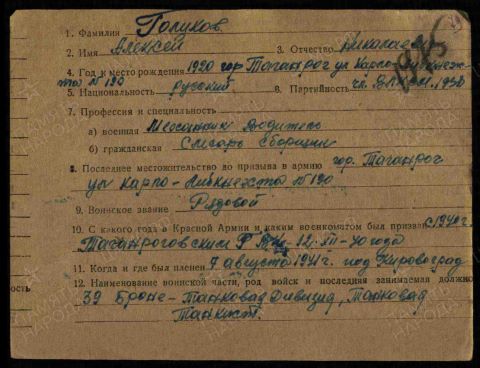 1. Фамилия Голиков.
2. Имя Алексей 3. Отчество Николаев
4. Год и место рождения 1920 гор Таганрог ул Карла-Либкнех-
та № 190
5. Национальность русский 6. Партийность чл. ВЛКСМ. 1938
7. Профессия и специальность
а) военная Механник Водитель
б) гражданская Слесарь сборщик
8. Последнее местожительство до призыва в армию гор. Таганрог
ул Карла-Либкнехта № 190
9. Воинское звание Рядовой
10. С какого года в Красной Армии и каким военкоматом был призван с 1940 г.
Таганроговским Г.В.К. 12. XII-40 года
11. Когда и где был пленен 7 августа 1941 г. под Кировоград
12. Наименование воинской части, род войск и последняя занимаемая должно
39 Броне-Танковая Дивизия, Танковая
Танкист.
ность